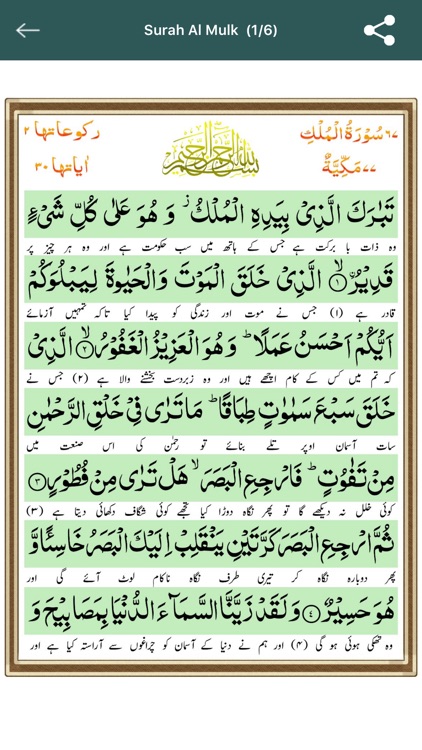 Surah Al Mulk (1/6)
۶۷ سُوْرَةُ الْمُلْكِ رکوعاتہا ۲
بسم الله الرحمن الرحيم
مَكِّيَّةٌ ۷۷ اٰیاتہا ۳۰
تَبٰرَكَ الَّذِیْ بِیَدِهِ الْمُلْكُ ۫ وَ هُوَ عَلٰی كُلِّ شَیْءٍ
وہ ذات با برکت ہے جس کے ہاتھ میں سب حکومت ہے اور وہ ہر چیز پر
قَدِیْرُ ۙ﴿۱﴾ الَّذِیْ خَلَقَ الْمَوْتَ وَالْحَیٰوةَ لِیَبْلُوَكُمْ
قادر ہے (۱) جس نے موت اور زندگی کو پیدا کیا تاکہ تمہیں آزمائے
اَیُّكُمْ اَحْسَنُ عَمَلًا ؕ وَ هُوَ الْعَزِیْزُ الْغَفُوْرُ ۙ﴿۲﴾ الَّذِیْ
کہ تم میں کس کے کام اچھے ہیں اور وہ زبردست بخشنے والا ہے (۲) جس نے
خَلَقَ سَبْعَ سَمٰوٰتٍ طِبَاقًا ؕ مَا تَرٰی فِیْ خَلْقِ الرَّحْمٰنِ
سات آسمان اوپر تلے بنائے تو رحمٰن کی اس صنعت میں
مِنْ تَفٰوُتٍ ؕ فَارْجِعِ الْبَصَرَ ۙ هَلْ تَرٰی مِنْ فُطُوْرٍ ﴿۳﴾
کوئی خلل نہ دیکھے گا تو پھر نگاہ دوڑا کیا تجھے کوئی شگاف دکھائی دیتا ہے (۳)
ثُمَّ ارْجِعِ الْبَصَرَ كَرَّتَیْنِ یَنْقَلِبْ اِلَیْكَ الْبَصَرُ خَاسِئًا وَّ
پھر دوبارہ نگاہ کر تیری طرف نگاہ ناکام لوٹ آئے گی اور
هُوَ حَسِیْرٌ ﴿۴﴾ وَ لَقَدْ زَیَّنَّا السَّمَآءَ الدُّنْیَا بِمَصَابِیْحَ وَ
وہ تھکی ہوئی ہو گی (۴) اور ہم نے دنیا کے آسمان کو چراغوں سے آراستہ کیا ہے اور